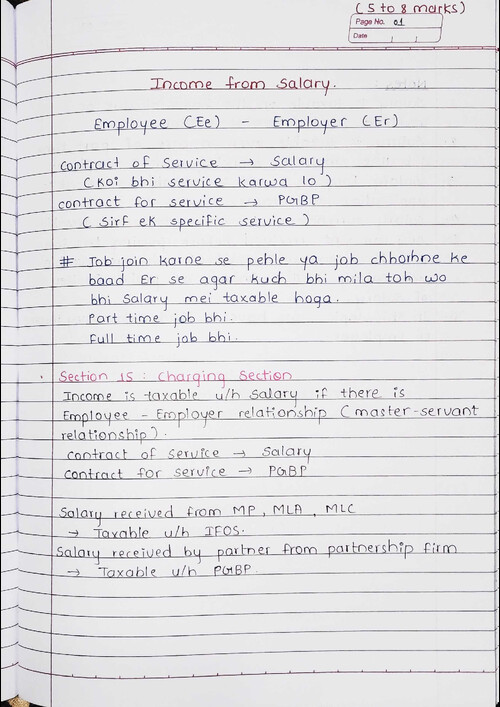 (5 to 8 marks)
Page No. 01
Date
Income from Salary.
Employee (Ee) - Employer (Er)
contract of Service → Salary
(Koi bhi service karwa lo)
contract for service → PGBP
(Sirf ek specific service)
# Job join karne se pehle ya job chhorhne ke
baad Er se agar kuch bhi mila toh wo
bhi Salary mei taxable hoga.
Part time job bhi.
Full time job bhi.
Section 15 : Charging Section
Income is taxable u/h Salary if there is
Employee - Employer relationship (master-servant
relationship).
contract of service → Salary
contract for service → PGBP
Salary received from MP, MLA, MLC
→ Taxable u/h IFOS.
Salary received by partner from partnership firm
→ Taxable u/h PGBP.